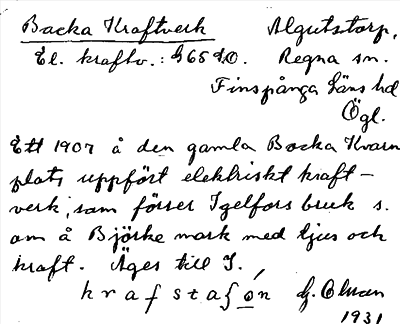 Backa Kraftverk Algutstorp,
El. kraftv.: G65 S.O. Regna sn.
Finspånga läns hd
Ögl.
Ett 1907 å den gamla Backa Kvarn
plats uppfört elektriskt kraft-
verk, som förser Igelfors bruk s.
om å Björke mark med ljus och
kraft. Äges till I.
krafsta
1931